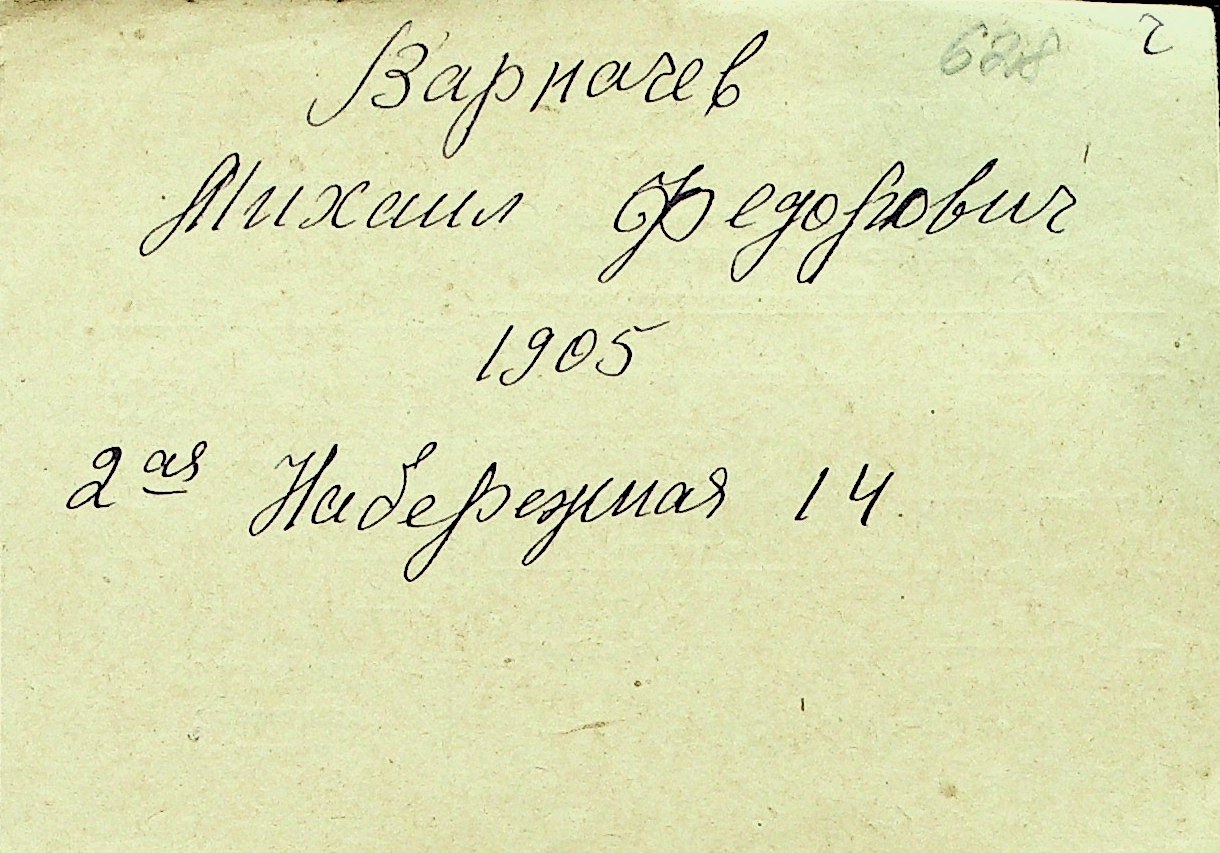 628 ч
Варначев
Михаил Федорович
1905
2ая Набережная 14